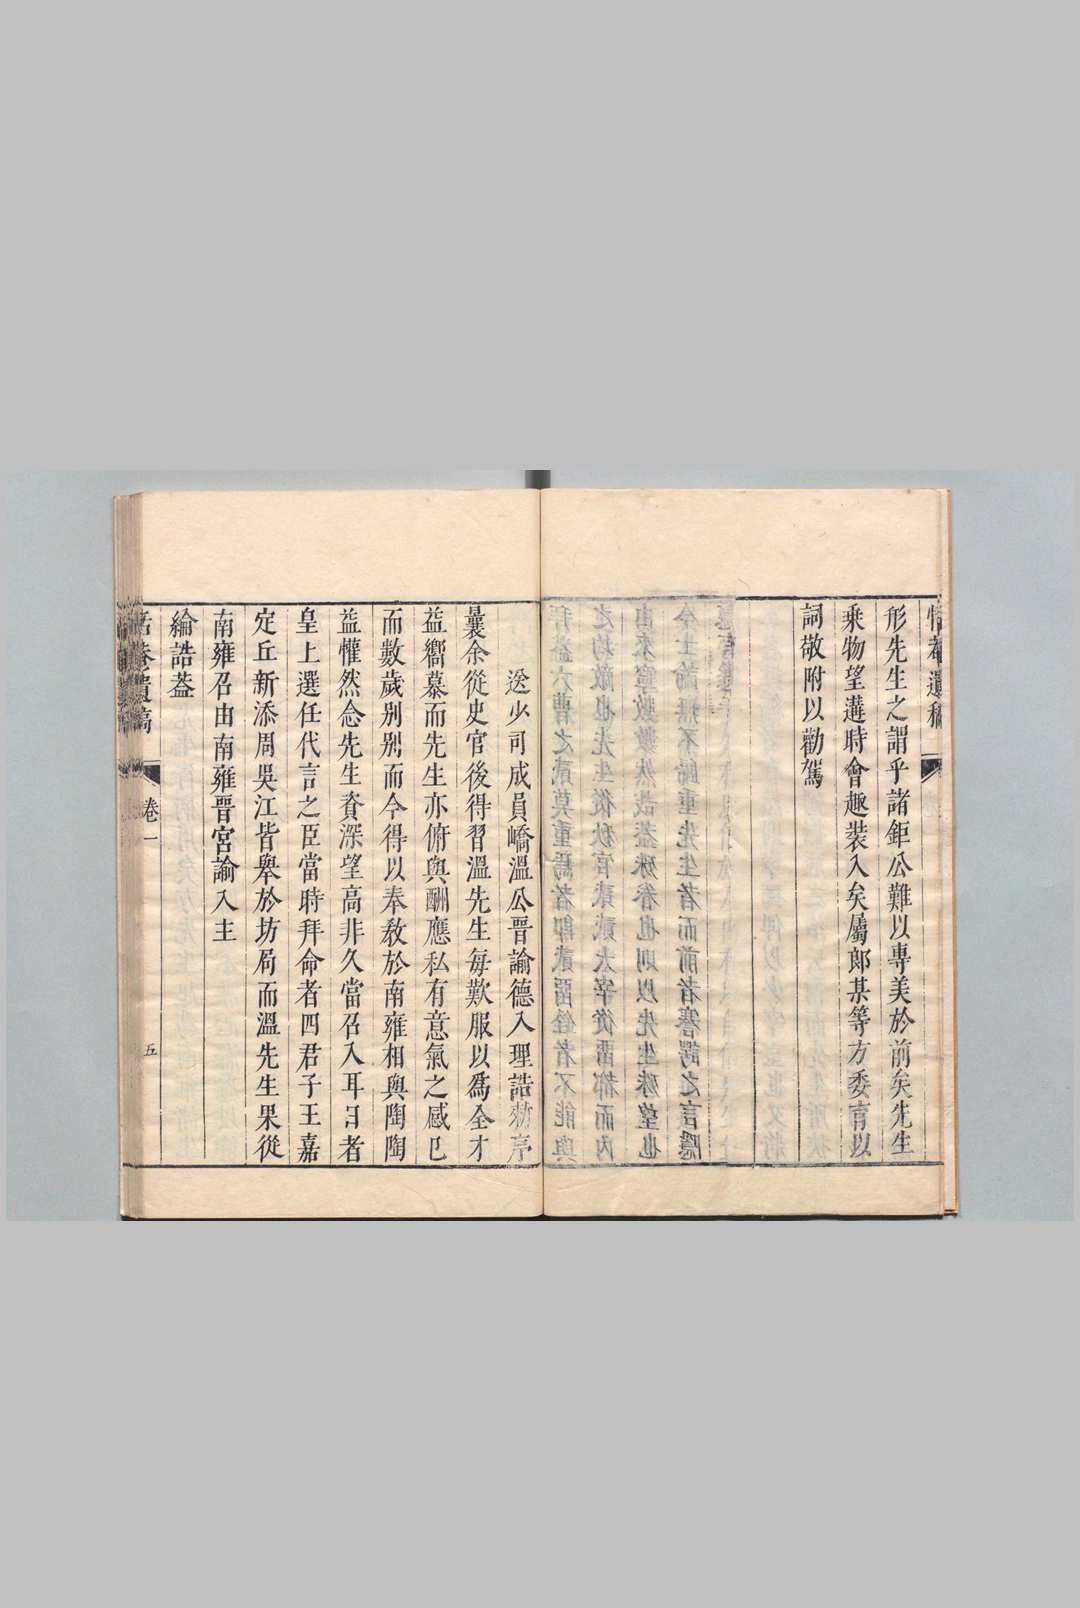 形先生之謂乎諸鉅公難以專美於前矣先生
乘物望遘時會趣裝入矣屬郎某等方委育以
詞敬附以勸駕
送少司成員嶠溫公晉諭德入理誥勑序
曩余從史官後得習溫先生每歎服以爲全才
益嚮慕而先生亦俯與酬應私有意氣之感已
而數歲别别而今得以奉敎於南雍相與陶陶
益懽然念先生資深望高非久當召入耳日者
皇上選任代言之臣當時拜命者四君子王嘉
定丘新添周吳江皆舉於坊局而溫先生果從
南雍召由南雍晉宮諭入主
綸誥葢
遺稿
卷一
五